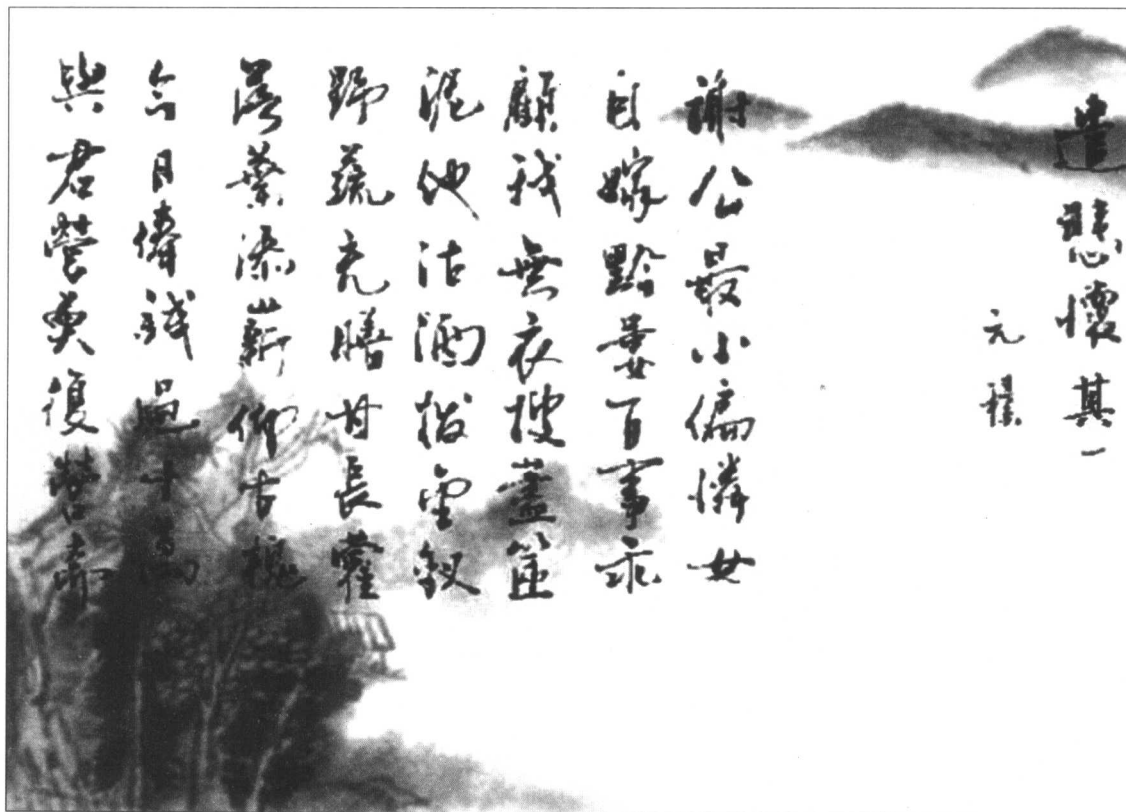 遣悲懷其一
元稹
謝公最小偏憐女
自嫁黔婁百事乖
顧我無衣搜盡篋
泥他沽酒拔金釵
野蔬充膳甘長藿
落葉添薪仰古槐
今日俸錢過十萬
與君營奠復營齋